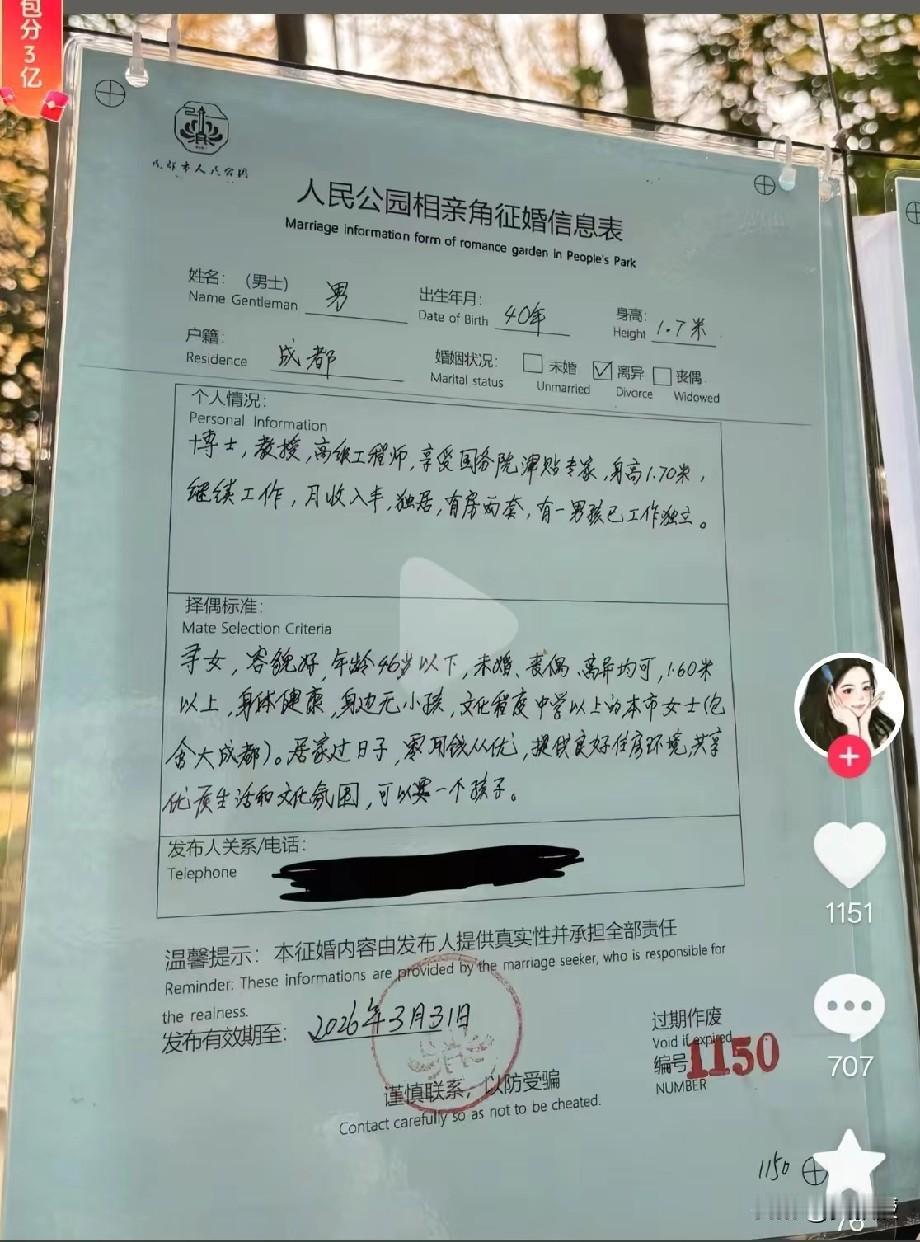 包分3亿
成都市人民公园
人民公园相亲角征婚信息表
Marriage information form of romance garden in People's Park
姓名：（男士） 男 出生年月： 40年 身高： 1.7米
Name Gentleman Date of Birth Height
户籍： 成都 婚姻状况： 未婚 ✓ 离异 丧偶
Residence Marital status Unmarried Divorce Widowed
个人情况：
Personal Information
博士，教授，高级工程师，享受国务院津贴专家，身高1.70米，
继续工作，月收入丰，独居，有房两套，有一男孩已工作独立。
择偶标准：
Mate Selection Criteria
寻女，容貌好，年龄46岁以下，未婚、丧偶、离异均可，1.60米
以上，身体健康，身边无小孩，文化程度中学以上的本市女士（包
含大成都）。居家过日子，零用钱从优，提供良好住房环境，共享
优质生活和文化氛围，可以要一个孩子。
发布人关系/电话：
Telephone
温馨提示：本征婚内容由发布人提供真实性并承担全部责任
Reminder: These informations are provided by the marriage seeker, who is responsible for
the realness.
发布有效期至： 2026年3月31日
过期作废
Void if expired
编号 1150
NUMBER
谨慎联系，以防受骗
Contact carefully so as not to be cheated.
1150
1151
707
76